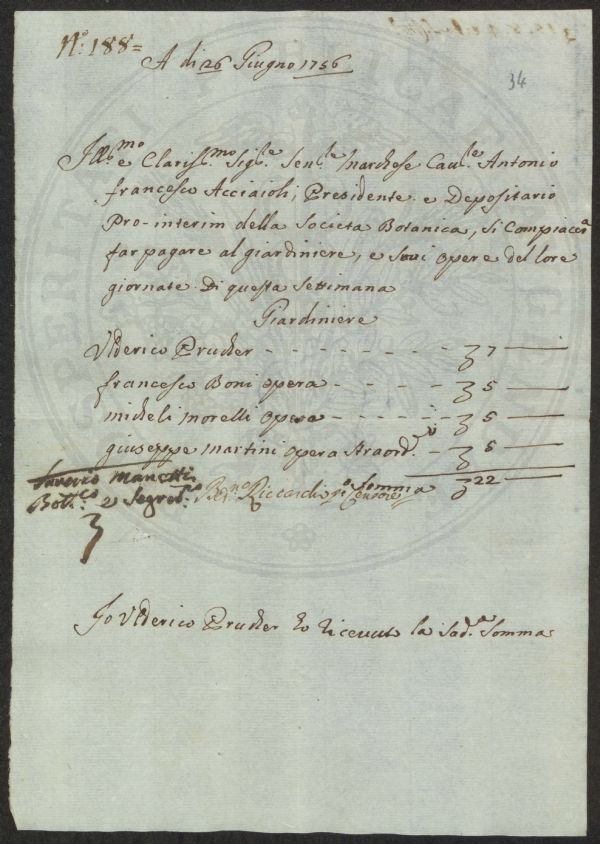 N.º 188=
A di 26 Giugno 1756
34
Ill:mo e Clariss:mo Sig:re Sen:re Marchese Cau:re Antonio
francesco Acciaioli, Presidente e Depositario
Pro-interim della Societa Botanica, Si Compiaccia
far pagare al giardiniere, e Suoi opere del lore
giornate di questa Settimana
Giardiniere
Vlderico Prucker - - - - - - - 7
francesco Boni opera - - - - - 5
micheli morelli opera - - - - - 5
giuseppe martini opera straord.ª - 5
Somma 22
Saverio Manetti
Bott:co e Segret:o
Ber:no Riccardi Pº Censore
Io Vlderico Prucker ho riceuuto la Sud.ª Somma